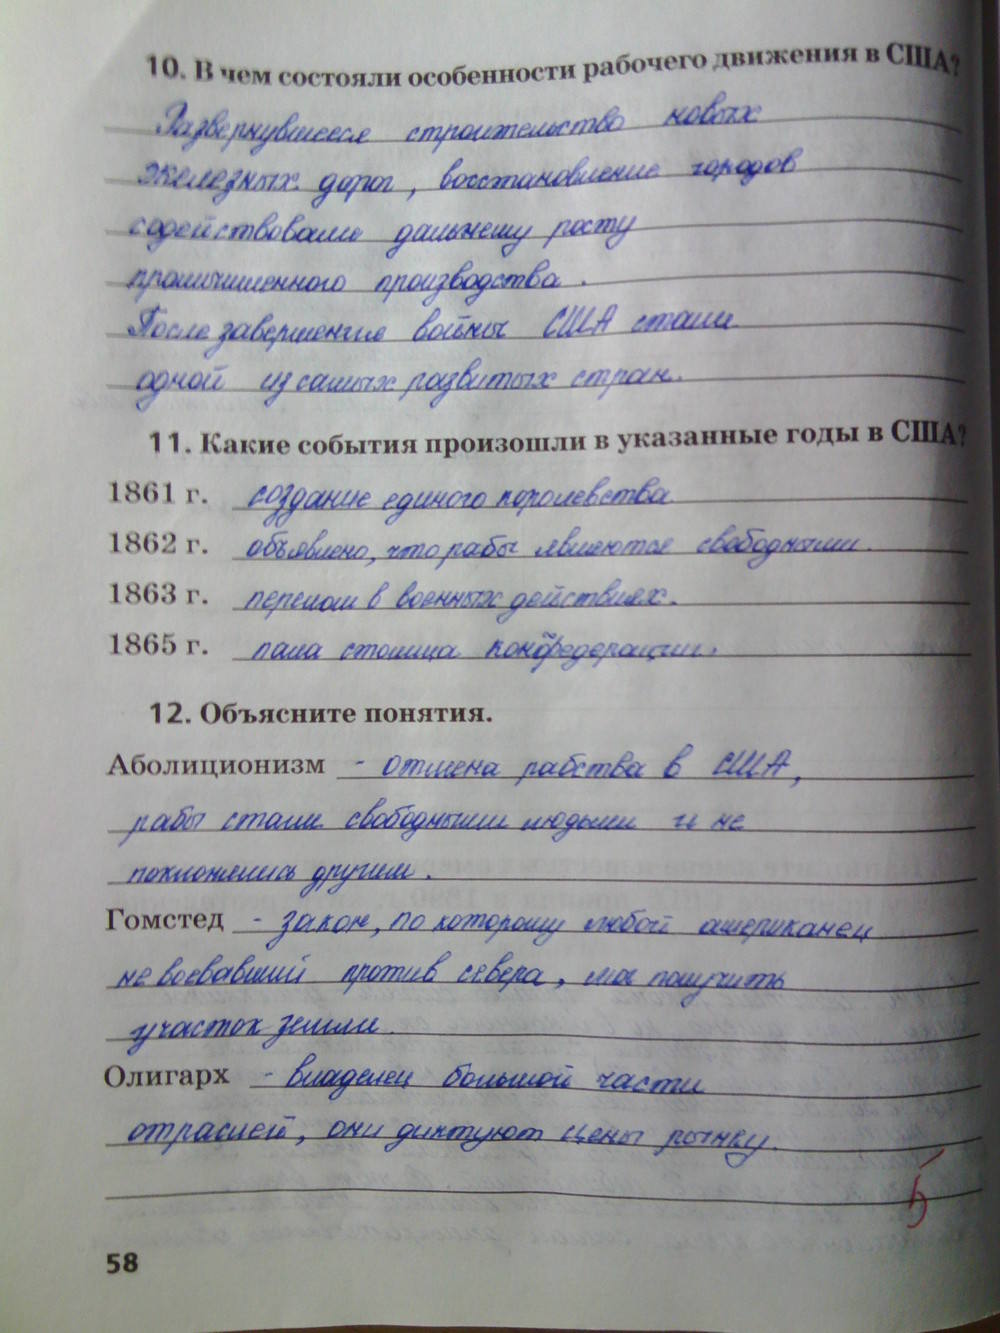 10. В чем состояли особенности рабочего движения в США?
Развернувшееся строительство новых
железных дорог, восстановление городов
содействовали дальнешу росту
промышленного производства.
После завершения войны США стали
одной из самых развитых стран.
11. Какие события произошли в указанные годы в США?
1861 г. создание единого королевства
1862 г. объявлено, что рабы являются свободными.
1863 г. перелом в военных действиях.
1865 г. пала столица конфедерации.
12. Объясните понятия.
Аболиционизм - отмена рабства в США,
рабы стали свободными людьми и не
поклонялись другим.
Гомстед - закон, по которому любой американец
не воевавший против севера, мог получить
участок земли.
Олигарх - владелец большой части
отраслей, они диктуют цены рынку.
5
58